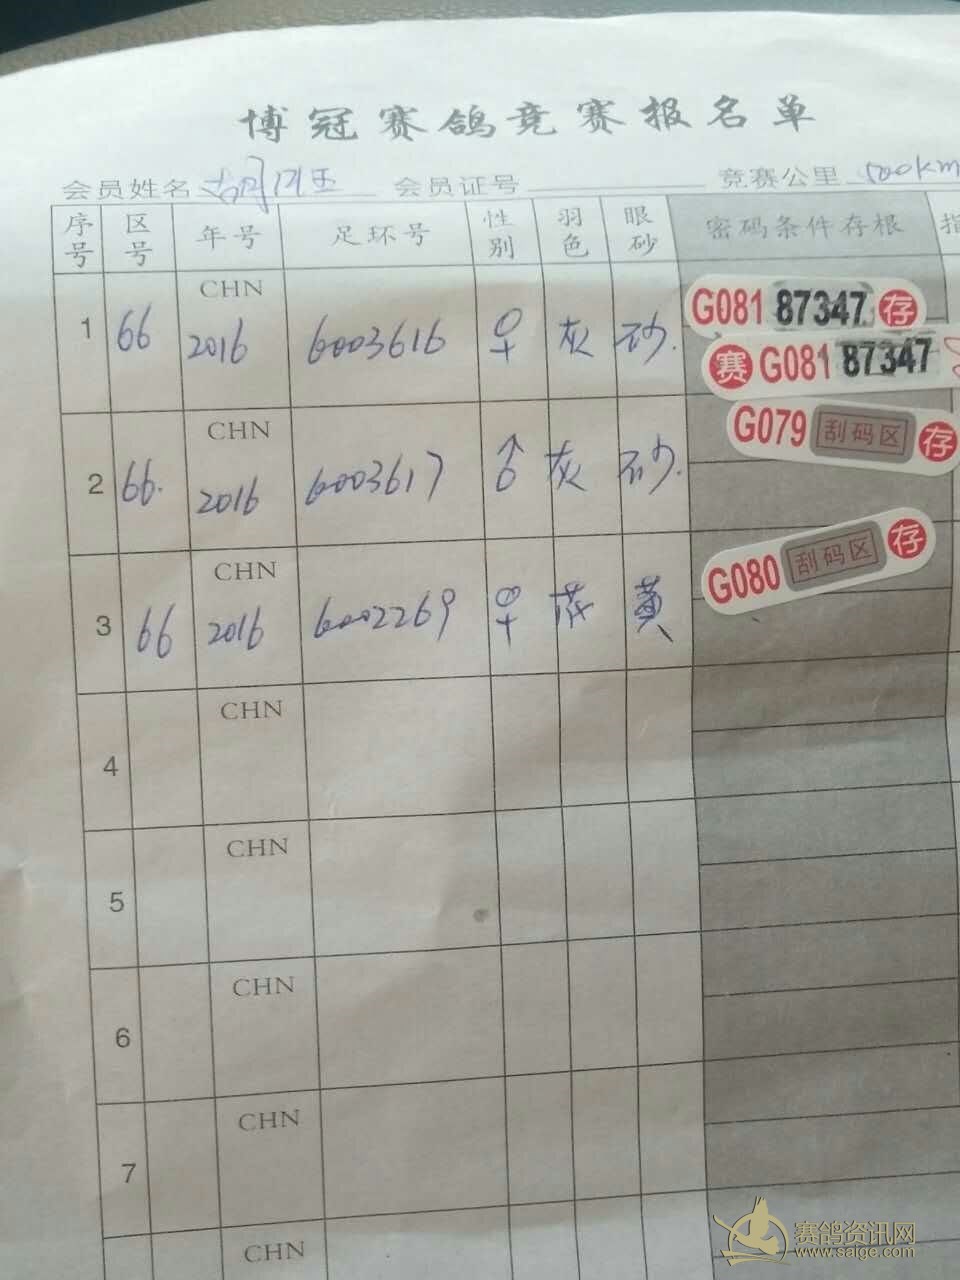 博冠赛鸽竞赛报名单
会员姓名 会员证号 竞赛公里 500km
序号 区号 年号 足环号 性别 羽色 眼砂 密码条件存根 指
1 66 CHN 2016 6003616 ♀ 灰 砂. G081 87347 存
赛 G081 87347
2 66. CHN 2016 6003617 ♂ 灰 砂. G079 刮码区 存
3 66 CHN 2016 6002269 ♀ 黄 G080 刮码区 存
4 CHN
5 CHN
6 CHN
7 CHN
CHN
赛鸽资讯网
www.saige.com